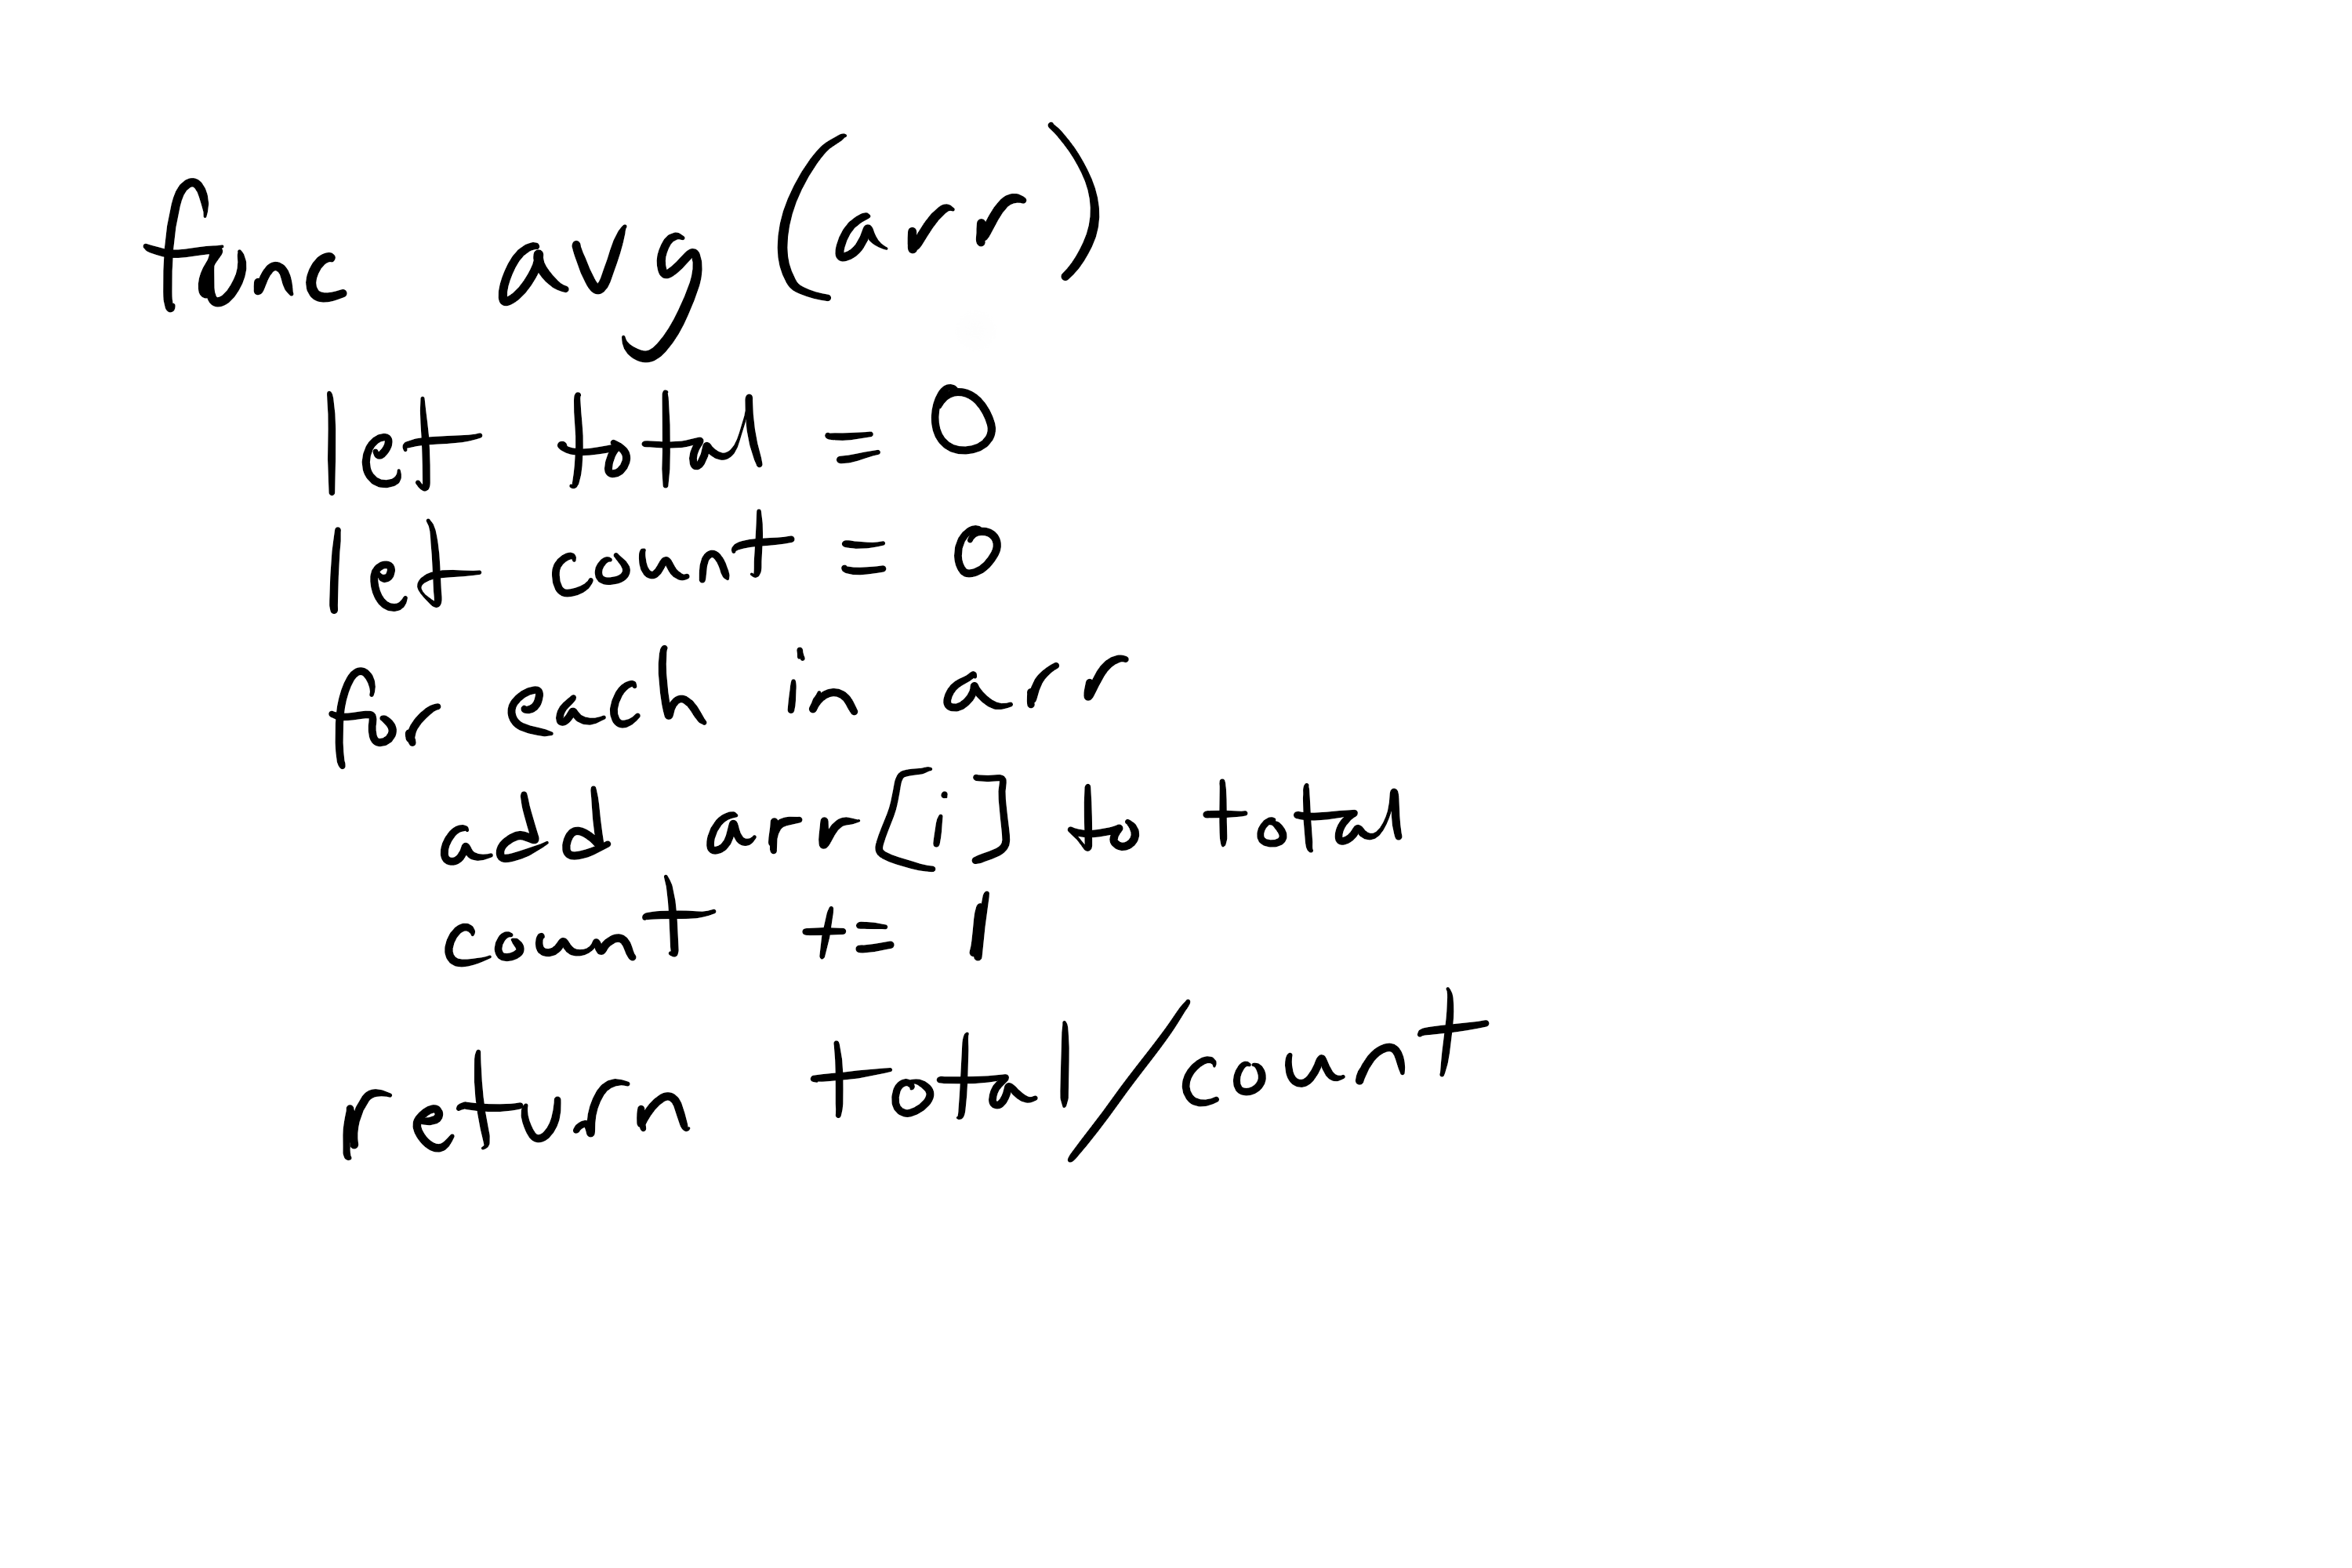 func avg (arr)
let total = 0
let count = 0
for each in arr
add arr[i] to total
count += 1
return total/count